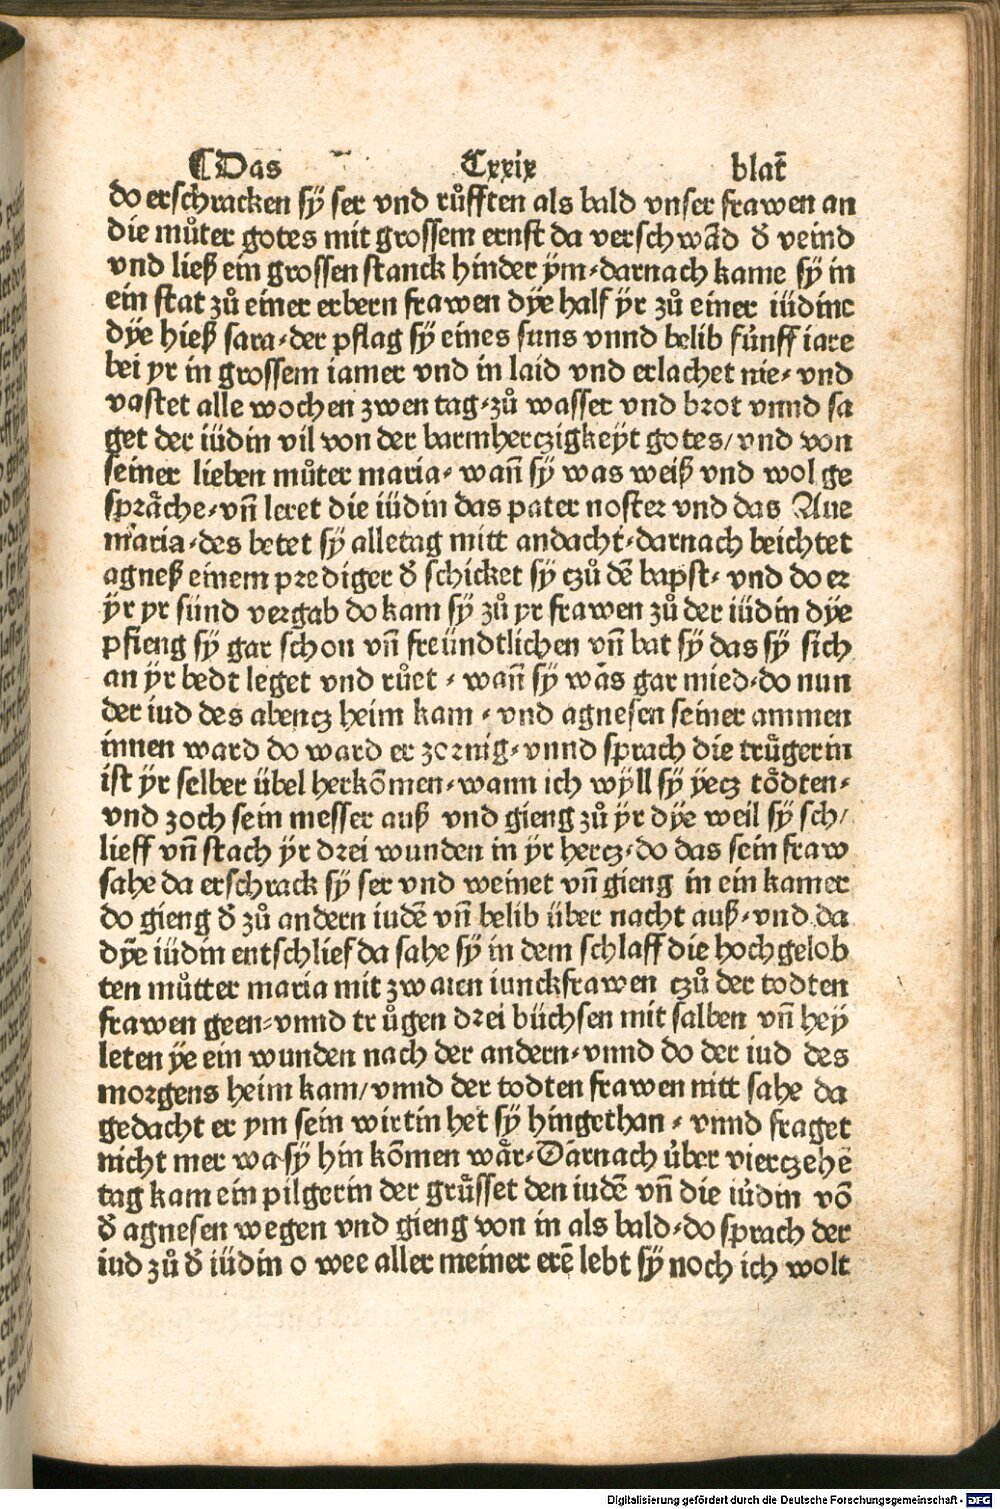 ⸿Das Cxxix blat̄
do erschracken sÿ ser vnd růfften als bald vnser frawen an
die můter gotes mit grossem ernst da verschwād đ veind
vnd ließ ein grossen stanck hinder ÿm⸗darnach kame sÿ in
ein stat zů einer erbern frawen dÿe half ÿr zů einer iüdinc
dÿe hieß sara⸗der pflag sÿ eines suns vnnd belib fünff iare
bei yr in grossem iamer vnd in laid vnd erlachet nie⸗ vnd
vastet alle wochen zwen tag⸗zů wasser vnd brot vnnd sa
get der iüdin vil von der barmherczigkeyt gotes/ vnd von
seiner lieben můter maria⸗ wañ sÿ was weiß vnd wol ge
språche⸗vñ leret die iüdin das pater noster vnd das Aue
maria⸗des betet sÿ alletag mitt andacht⸗darnach beichtet
agneß einem prediger đ schicket sÿ czů dē bapst⸗ vnd do er
ÿr yr sünd vergab do kam sÿ zů yr frawen zů der iüdin dÿe
pfieng sÿ gar schon vñ freündtlichen vñ bat sÿ das sÿ sich
an ÿr bedt leget vnd růet ⸗ wañ sÿ was gar mied⸗do nun
der iud des abencz heim kam ⸗ vnd agnesen seiner ammen
innen ward do ward er zornig⸗vnnd sprach die trůgerin
ist ÿr selber übel herkōmen⸗wann ich wÿll sÿ ÿecz tödten⸗
vnd zoch sein messer auß vnd gieng zů ÿr dÿe weil sÿ sch/
lieff vñ stach ÿr drei wunden in ÿr hercz⸗do das sein fraw
sahe da erschrack sÿ ser vnd weinet vñ gieng in ein kamer
do gieng đ zů andern iudē vñ belib über nacht auß⸗vnd da
dÿe iüdin entschlief da sahe sÿ in dem schlaff die hochgelob
ten můtter maria mit zwaien iunckfrawen czů der todten
frawen geen⸗vnnd trůgen drei büchsen mit salben vñ hey
leten ÿe ein wunden nach der andern⸗vnnd do der iud des
morgens heim kam/ vnnd der todten frawen nitt sahe da
gedacht er ym sein wirtin het sÿ hingethan ⸗ vnnd fraget
nicht mer wa sÿ hin kōmen wår⸗Darnach über vierczehē
tag kam ein pilgerin der grůsset den iudē vñ die iüdin vō
đ agnesen wegen vnd gieng von in als bald⸗do sprach der
iud zů đ iüdin o wee aller meiner erē lebt sÿ noch ich wolt
Digitalisierung gefördert durch die Deutsche Forschungsgemeinschaft - DFG